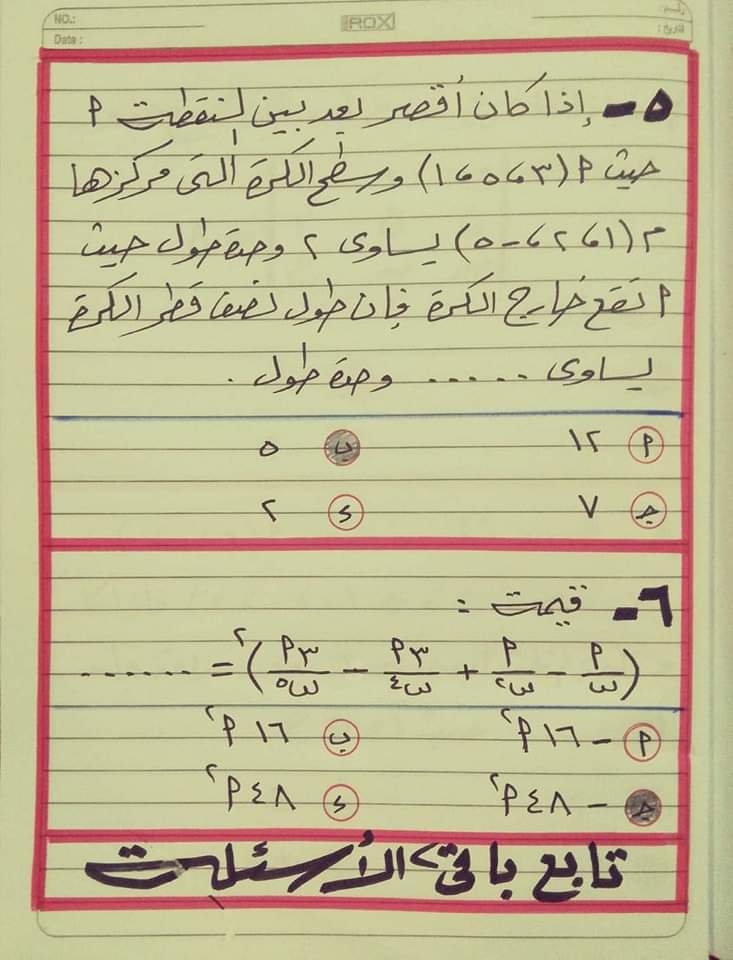 NO.:
ROX
Data :
٥- إذا كان أقصر بعد بين النقطة P
حيث P (٣، ٥، ١) وسطح الكرة التى مركزها
م (١، ٢، -٥) يساوى ٢ وحدة طول حيث
P تقع خارج الكرة فإن طول نصف قطر الكرة
يساوى ...... وحدة طول .
P ١٢ ب ٥
ج ٧ د ٢
٦- قيمة :
(P/س - P/س٢ + ٣P/س٤ - ٣P/س٥)٢ = .......
P - ١٦ P٢ ب ١٦ P٢
ج - ٤٨ P٢ د ٤٨ P٢
تابع باقى الأسئلة